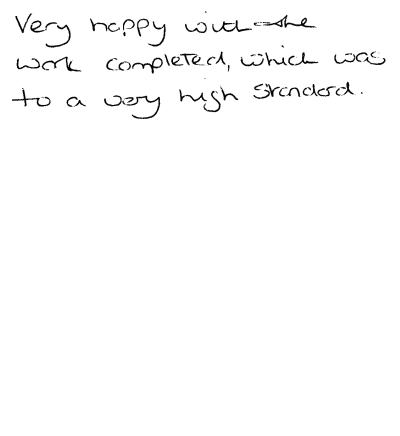 Very happy with the
work completed, which was
to a very high standard.